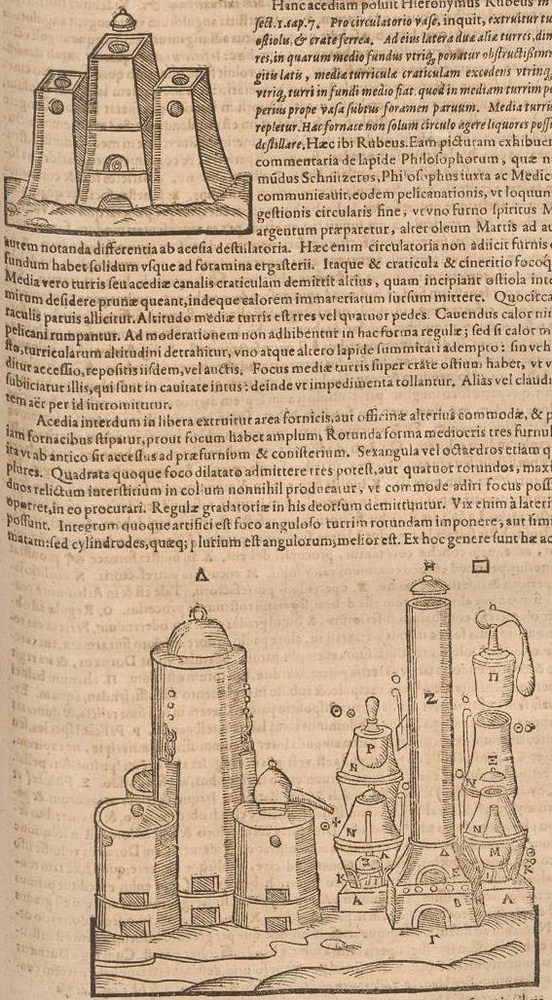 Hanc acediam posuit Hieronymus Rubeus in
sect.1.cap.7. Pro circulatorio vase, inquit, extruitur tu
ostiolis, & crate ferrea. Ad eius latera duæ aliæ turres, dim
res, in quarum medio fundus vtriq; ponatur obstructissim
gitis latis, mediæ turriculæ craticulam excedens vtrinq
vtriq; turri in fundi medio fiat quod in mediam turrim pe
perius prope vasa subtus foramen paruum. Media turri
repletur. Hac fornace non solum circulo agere liquores possi
destillare. Hæc ibi Rubeus. Eam picturam exhibuer
commentaria de lapide Philosophorum, quæ n
mûdus Schnitzerus, Philosophus iuxta ac Medic
communicauit, eodem pelicanationis, vt loquun
gestionis circularis fine, vt vno furno spiritus M
argentum præparetur, alter oleum Martis ad au
autem notanda differentia ab acesia destillatoria. Hæc enim circulatoria non adiicit furnis
fundum habet solidum vsque ad foramina ergasterii. Itaque & craticula & cineritio focoq
Media vero turris seu acediæ canalis craticulam demittit alcius, quam incipiant ostiola inte
mirum desidere prunæ queant, indeque calorem immateriatum sursum mittere. Quocirca
raculis paruis allicitur. Altitudo mediæ turris est tres vel quatuor pedes. Cauendus calor nir
pelicani rumpantur. Ad moderationem non adhibentur in hac forma regulæ; sed si calor m
sto, turricularum altitudini detrahitur, vno atque altero lapide summitati adempto: sin veh
ditur accessio, repositis iisdem, vel auctis. Focus mediæ turris super crate ostium habet, vt v
subiiciatur illis, qui sunt in cauitate intus: deinde vt impedimenta tollantur. Alias vel claudi
tem aër per id intromittitur.
Acedia interdum in libera extruitur area fornicis, aut officinæ alterius commodæ, & p
iam fornacibus stipatur, prout focum habet amplum, Rotunda forma mediocris tres furnul
ita vt ab antico sit accessus ad præfurnium & conisterium. Sexangula vel octaedros etiam q
plures. Quadrata quoque foco dilatato admittere tres potest, aut quatuor rotundos, maxi
duos relictum interstitium in column nonnihil producatur, vt commode adiri focus poss
oportet, in eo procurari. Regulæ gradatoriæ in his deorsum demittuntur. Vix enim à laterib
possunt. Integrum quoque artifici est foco anguloso turrim rotundam imponere, aut sim
matam: sed cylindrodes, quæq; plurium est angulorum, melior est. Ex hoc genere sunt hæ ac
Δ
H
Z
Π
P
Ξ
N
N
N
N
M
Λ
K
Δ
E
B
A
Λ
Γ